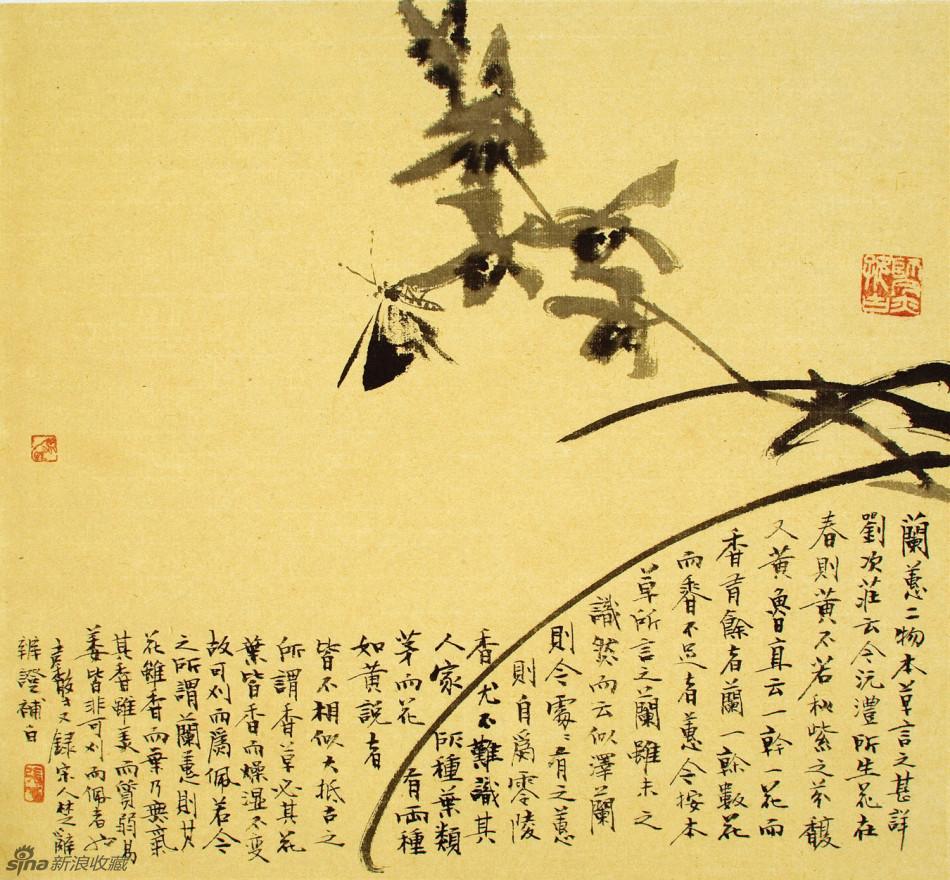 蘭蕙二物本草言之甚詳
劉次莊云今沅澧所生花在
春則黃不若秋紫之芬馥
又黃魯直云一幹一花而
香有餘者蘭一榦數花
而香不足者蕙今按本
草所言之蘭雖未之
識然而云似澤蘭
則今處〻有之蕙
則自爲零陵
香尤不難識其
人家所種葉類
茅而花有兩種
如黃說者
皆不相似大抵古之
所謂香草必其花
葉皆香而燥湿不變
故可刈而爲佩若今
之所謂蘭蕙則其
花雖香而葉乃無氣
其香雖美而質弱易
萎皆非可刈而佩者也
又録宋人楚辭
辨證補白
sina新浪收藏